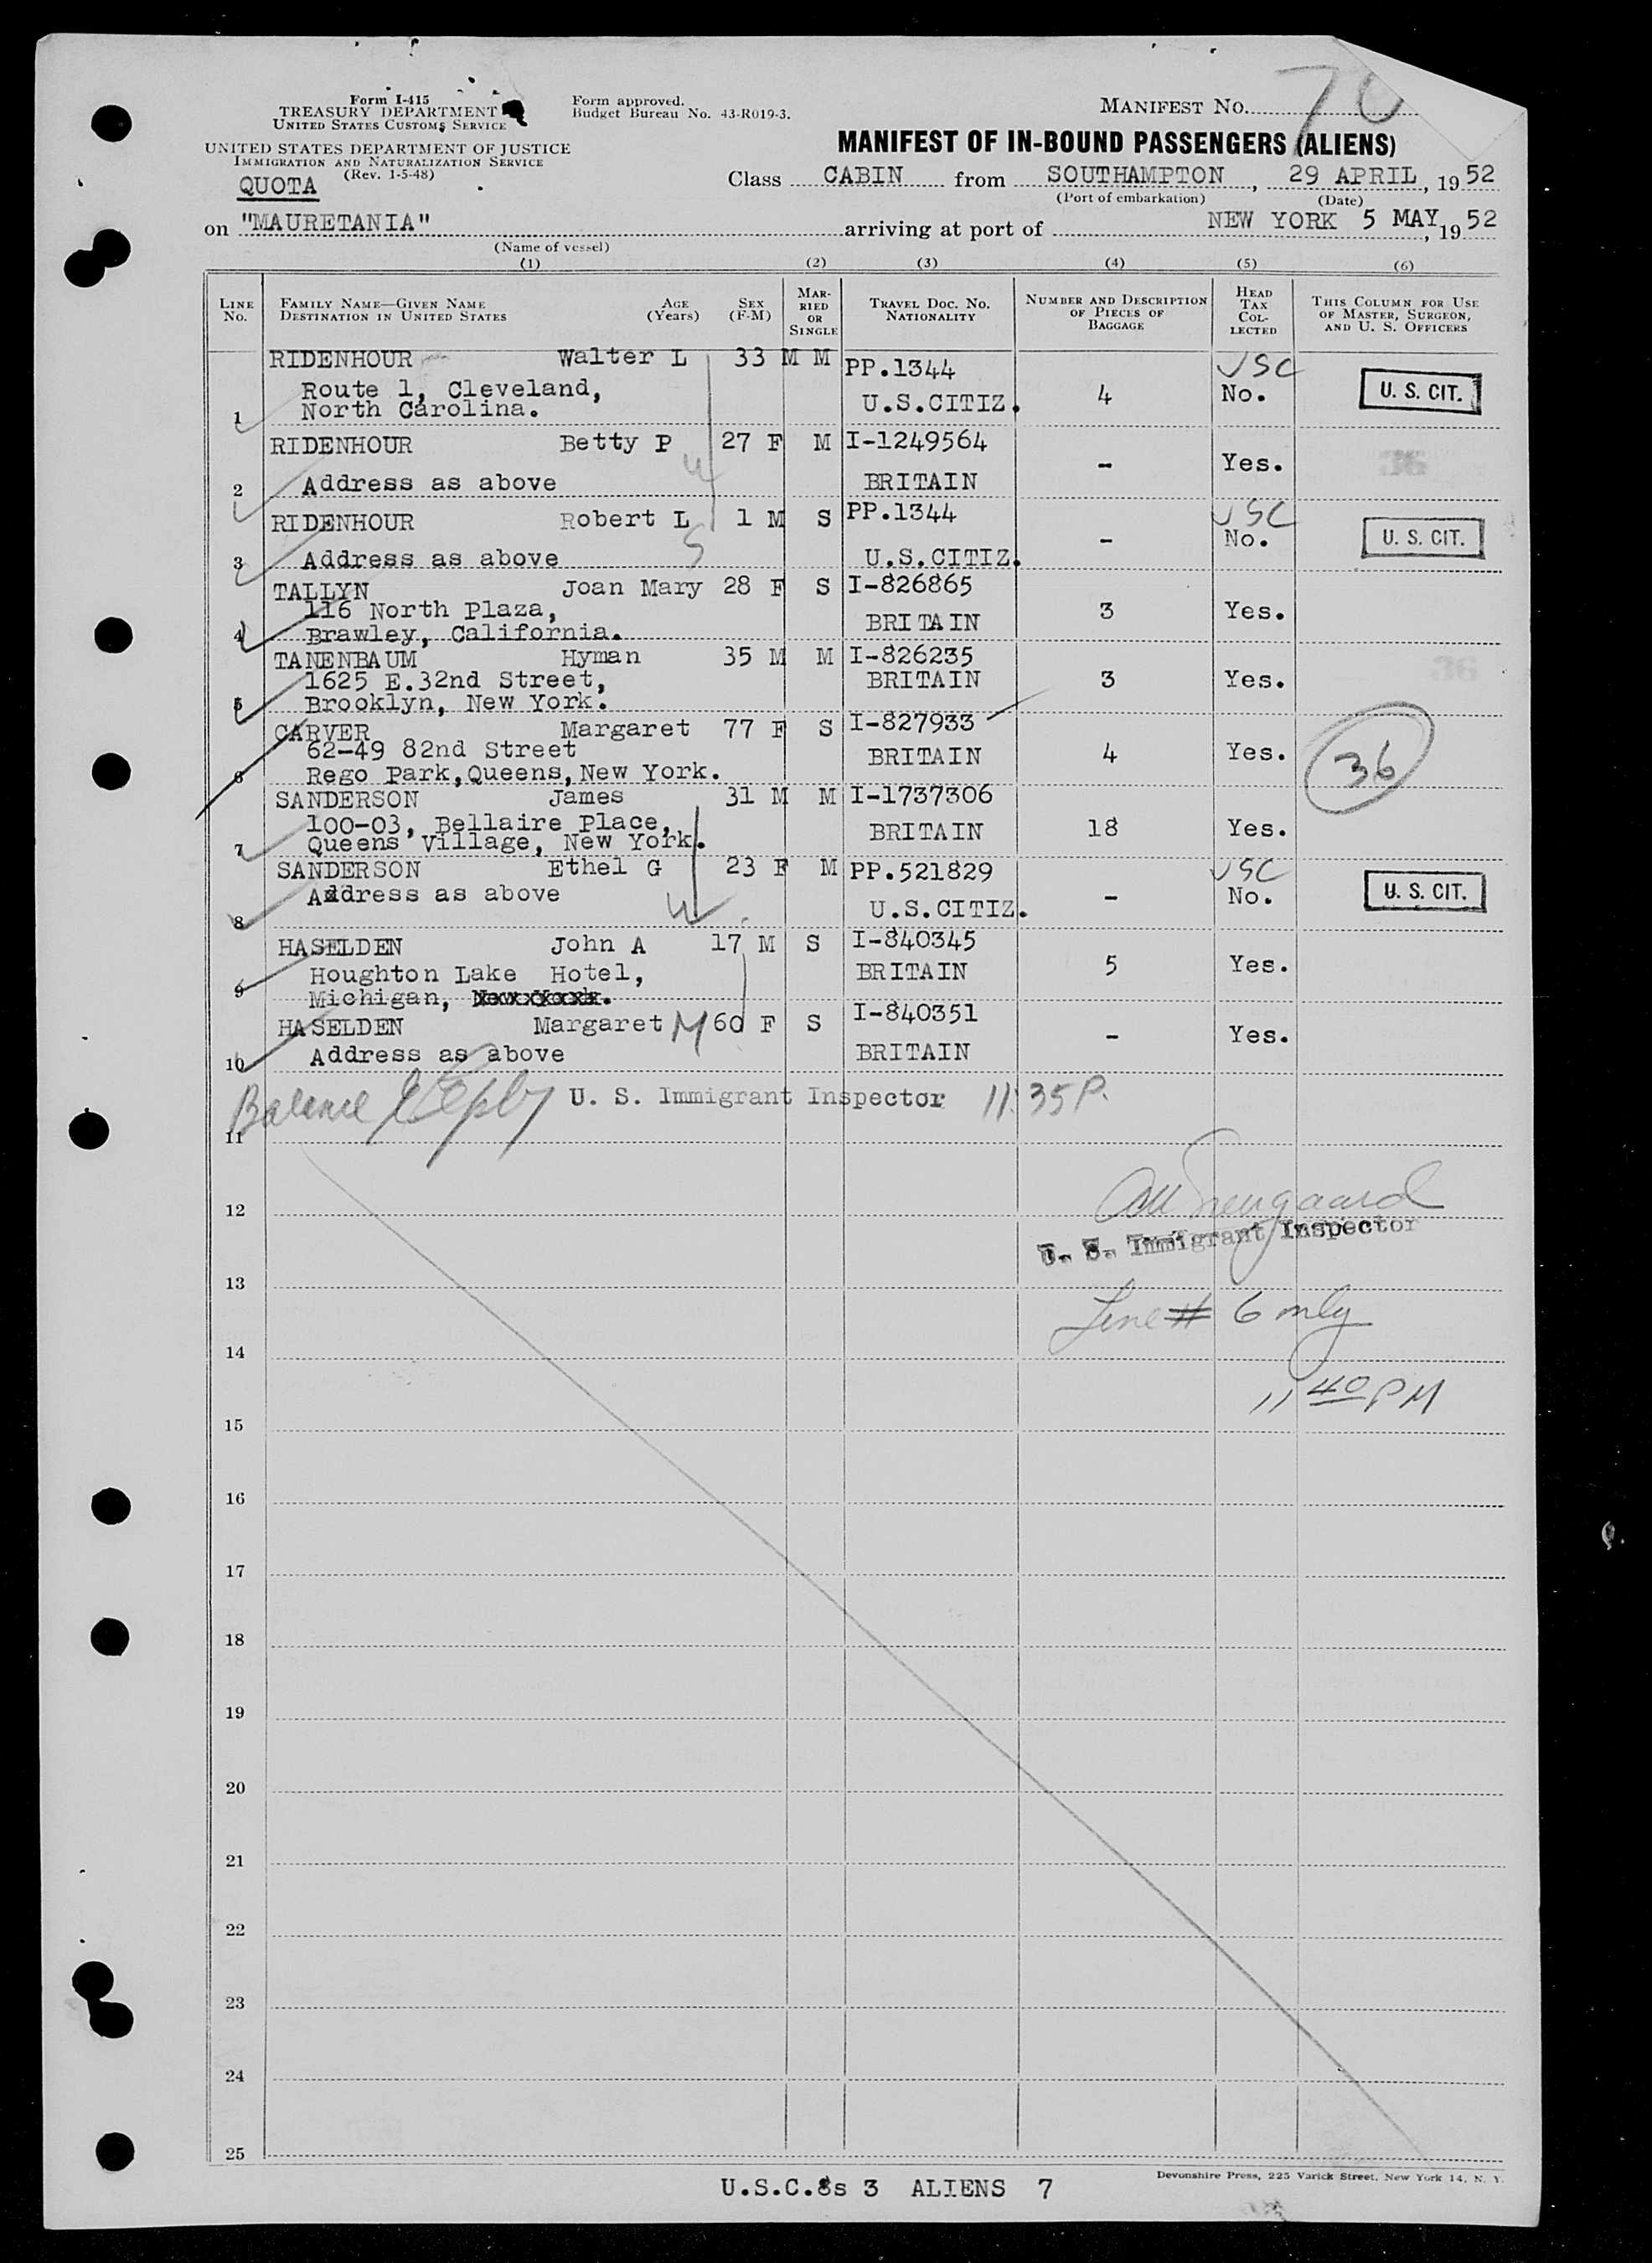 Form I-415
TREASURY DEPARTMENT
UNITED STATES CUSTOMS SERVICE
UNITED STATES DEPARTMENT OF JUSTICE
IMMIGRATION AND NATURALIZATION SERVICE
(Rev. 1-5-48)
QUOTA
Form approved.
Budget Bureau No. 43-R019-3.
MANIFEST NO. 70
MANIFEST OF IN-BOUND PASSENGERS (ALIENS)
Class CABIN from SOUTHAMPTON, 29 APRIL, 1952
(Port of embarkation) (Date)
on "MAURETANIA" arriving at port of NEW YORK 5 MAY, 1952
(Name of vessel)
(1) (2) (3) (4) (5) (6)
LINE NO. FAMILY NAME—GIVEN NAME DESTINATION IN UNITED STATES AGE (Years) SEX (F-M) MARRIED OR SINGLE TRAVEL DOC. NO. NATIONALITY NUMBER AND DESCRIPTION OF PIECES OF BAGGAGE HEAD TAX COLLECTED THIS COLUMN FOR USE OF MASTER, SURGEON, AND U. S. OFFICERS
RIDENHOUR Walter L 33 M M PP.1344 USC
Route 1, Cleveland, U.S.CITIZ. 4 No. U. S. CIT.
1 North Carolina.
RIDENHOUR Betty P 27 F M I-1249564
- Yes. 36
2 Address as above BRITAIN
RIDENHOUR Robert L 1 M S PP.1344 USC
- No. U. S. CIT.
3 Address as above U.S.CITIZ.
TALLYN Joan Mary 28 F S I-826865
116 North Plaza, BRITAIN 3 Yes.
4 Brawley, California.
TANENBAUM Hyman 35 M M I-826235
1625 E.32nd Street, BRITAIN 3 Yes. 36
5 Brooklyn, New York.
CARVER Margaret 77 F S I-827933
62-49 82nd Street BRITAIN 4 Yes. 36
6 Rego Park,Queens,New York.
SANDERSON James 31 M M I-1737306
100-03, Bellaire Place, BRITAIN 18 Yes.
7 Queens Village, New York.
SANDERSON Ethel G 23 F M PP.521829 USC
Address as above U.S.CITIZ. - No. U. S. CIT.
8
HASELDEN John A 17 M S I-840345
Houghton Lake Hotel, BRITAIN 5 Yes.
9 Michigan,
HASELDEN Margaret M 60 F S I-840351
- Yes.
10 Address as above BRITAIN
Balance U. S. Immigrant Inspector 11:35 P.
11
12
U. S. Immigrant Inspector
13
Line # 6 only
14
11 40 PM
15
16
17
18
19
20
21
22
23
24
25
Devonshire Press, 225 Varick Street, New York 14, N. Y.
U.S.C.8s 3 ALIENS 7